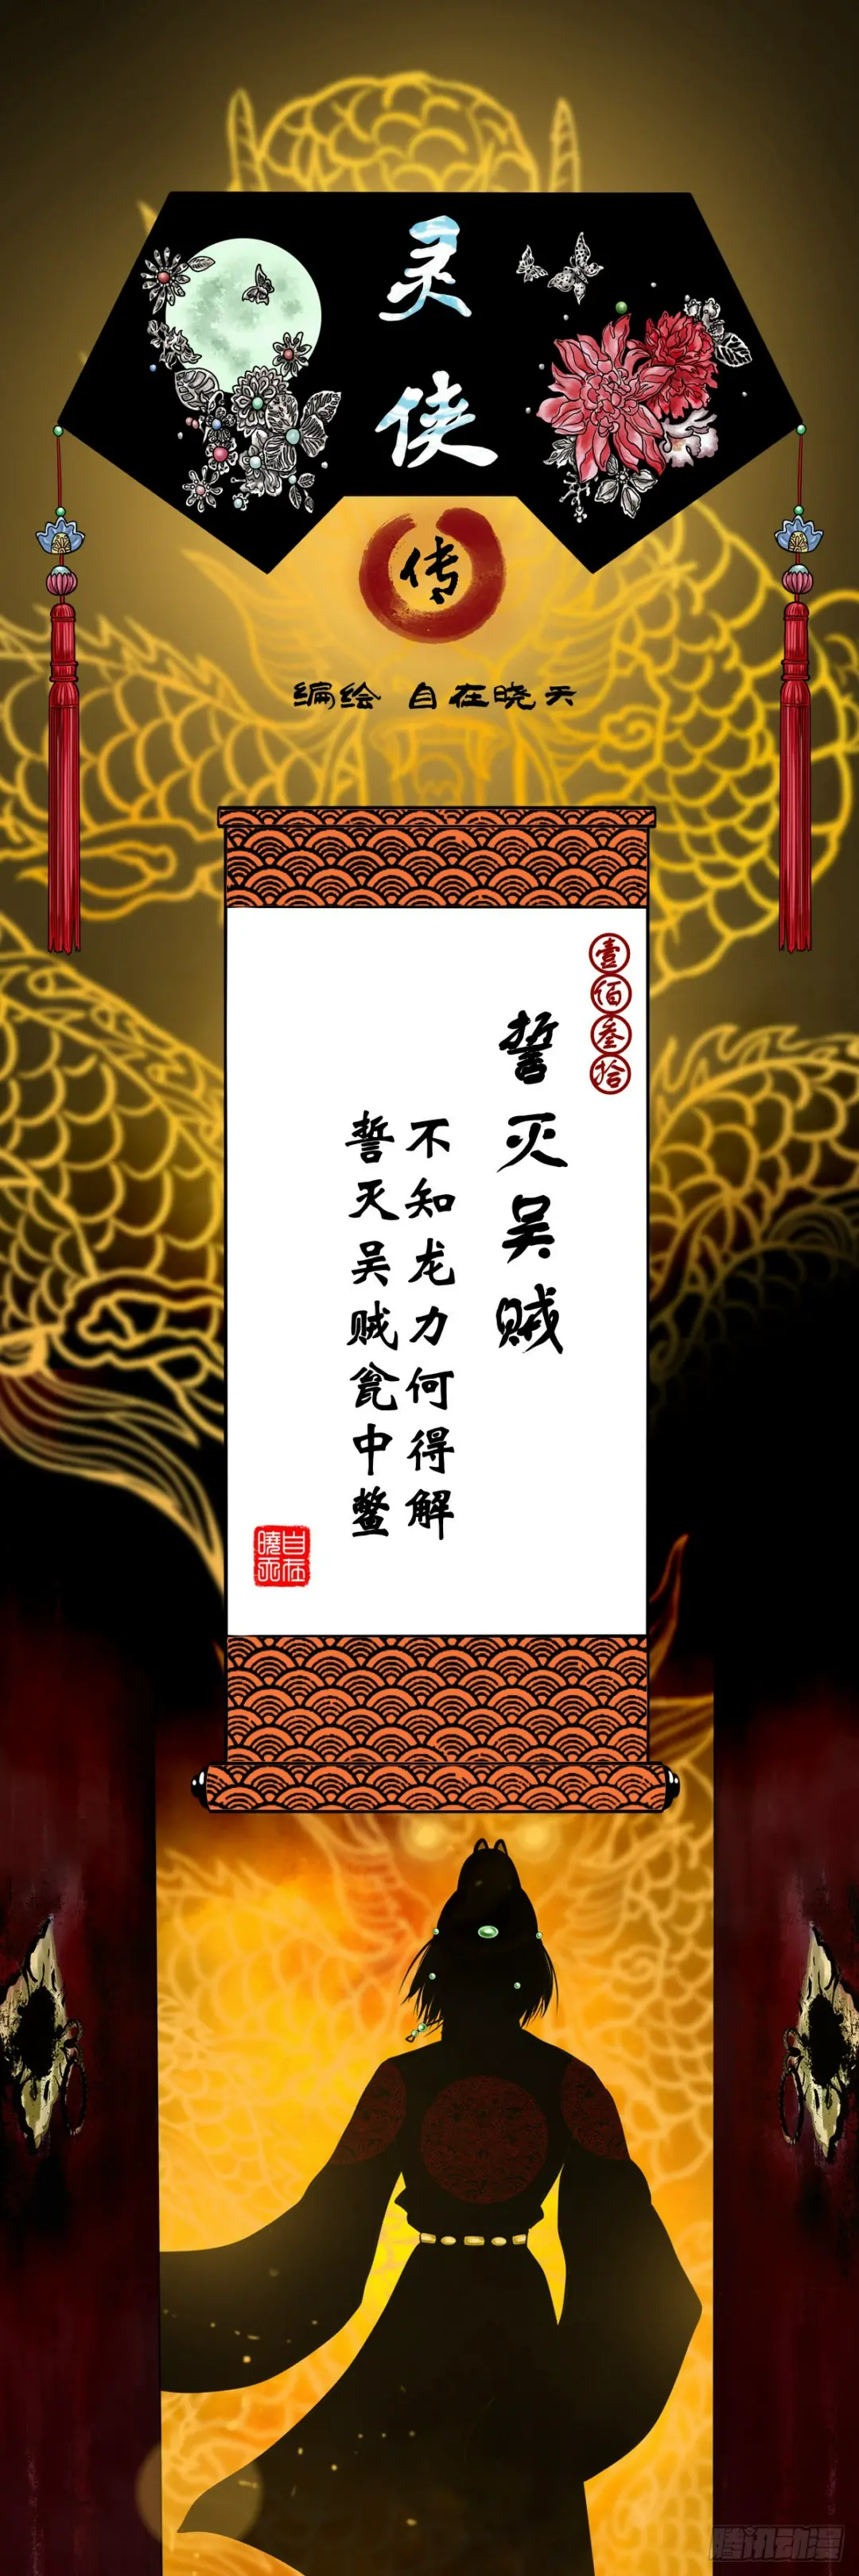 灵侠
传
编绘 自在晓天
壹佰叁拾
誓灭吴贼
不知龙力何得解
誓灭吴贼瓮中鳖
自在曉天
腾讯动漫